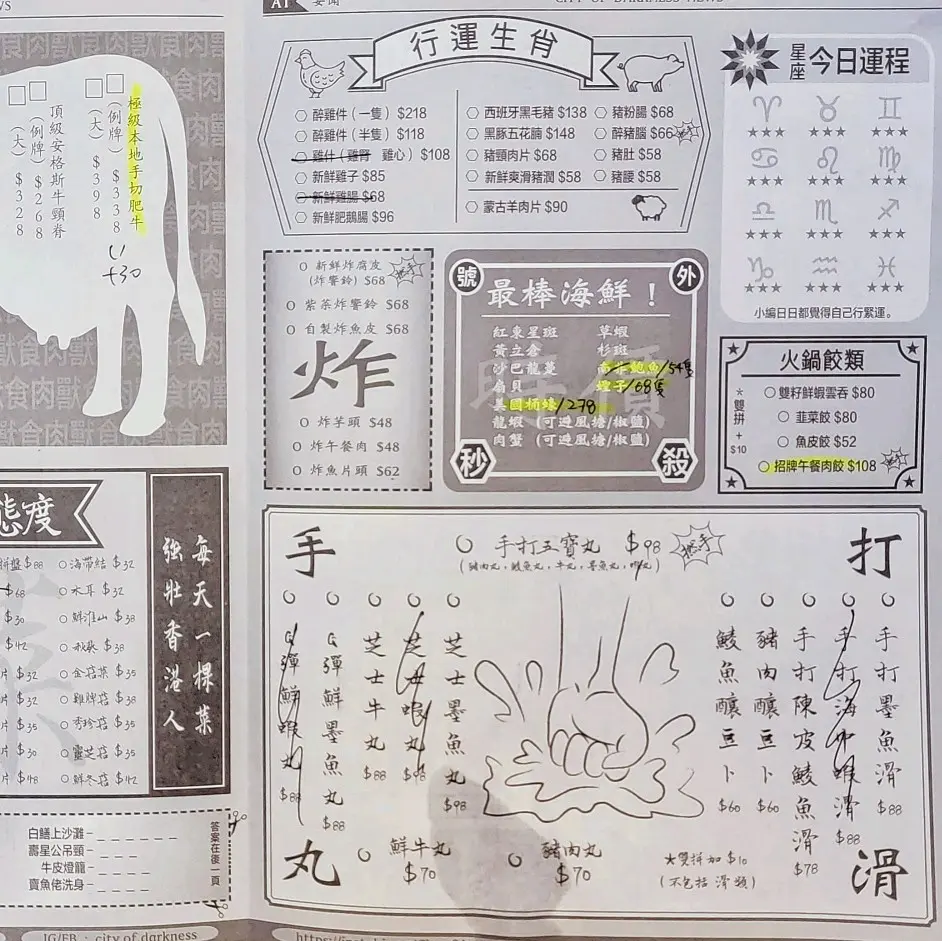 A1 要聞
CITY OF DARKNESS NEWS
極級本地手切肥牛
(例牌) $338
(大) $398
+30
頂級安格斯牛頸脊
(例牌) $268
(大) $328
行運生肖
醉雞件（一隻）$218
醉雞件（半隻）$118
雞什（雞腎 雞心）$108
新鮮雞子 $85
新鮮雞腸 $68
新鮮肥鵝腸 $96
西班牙黑毛豬 $138
黑豚五花腩 $148
豬頸肉片 $68
新鮮爽滑豬潤 $58
豬粉腸 $68
醉豬腦 $66
豬肚 $58
豬腰 $58
蒙古羊肉片 $90
星座 今日運程
★★★ ★★★ ★★★
★★★ ★★★ ★★★
★★★ ★★★ ★★★
★★★ ★★★ ★★★
小編日日都覺得自己行緊運。
新鮮炸腐皮
(炸響鈴) $68
紫菜炸響鈴 $68
自製炸魚皮 $68
炸
炸芋頭 $48
炸午餐肉 $48
炸魚片頭 $62
號外
最棒海鮮！
紅東星斑 草蝦
黃立倉 杉斑
沙巴龍躉 南非鮑魚/54隻
扇貝 蟶子/68隻
美國桶蠔/278
龍蝦 (可避風塘/椒鹽)
肉蟹 (可避風塘/椒鹽)
秒殺
火鍋餃類
*雙拼+$10
雙籽鮮蝦雲吞 $80
韮菜餃 $80
魚皮餃 $52
招牌午餐肉餃 $108
態度
拼盤 $88
海帶結 $32
$68
木耳 $32
$30
鮮淮山 $38
$42
秋葵 $38
片 $32
金菇菜 $35
片 $32
雞脾菇 $38
片 $35
秀珍菇 $35
片 $35
靈芝菇 $35
片 $48
鮮冬菇 $42
每天一棵菜
強壯香港人
白鱔上沙灘– _ _ _ _ _
壽星公吊頸– _ _ _
牛皮燈籠– _ _ _ _
賣魚佬洗身– _ _ _ _
答案在後一頁
手打丸滑
手打五寶丸 $98
(豬肉丸，鯪魚丸，牛丸，墨魚丸，蝦丸)
G彈鮮蝦丸 $88
G彈鮮墨魚丸 $88
芝士牛丸 $88
芝士蝦丸 $98
芝士墨魚丸 $98
鯪魚釀豆卜 $60
豬肉釀豆卜 $60
手打陳皮鯪魚滑 $78
手打海中蝦滑 $88
手打墨魚滑 $88
鮮牛丸 $70
豬肉丸 $70
*雙拼加 $10
(不包括滑類)
IG/FB : city of darkness